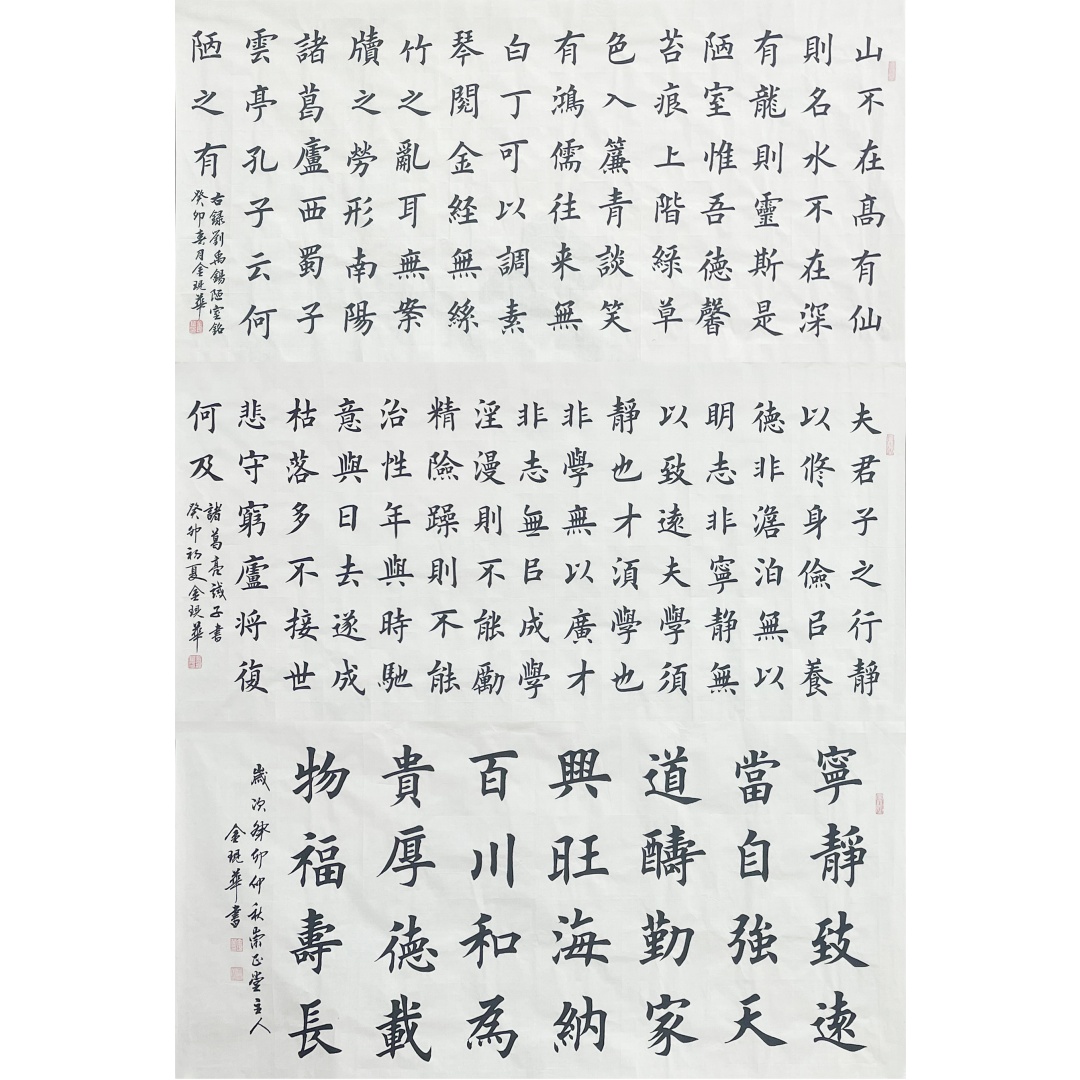 山不在髙有仙
則名水不在深
有龍則靈斯是
陋室惟吾德馨
苔痕上階緑草
色入簾青談笑
有鴻儒往来無
白丁可以調素
琴閱金経無絲
竹之亂耳無案
牘之勞形南陽
諸葛廬西蜀子
雲亭孔子云何
陋之有
右録劉禹錫陋室銘
癸卯春月金琨華
夫君子之行靜
以修身儉㠯養
德非澹泊無以
明志非寧靜無
以致遠夫學須
靜也才須學也
非學無以廣才
非志無㠯成學
淫漫則不能勵
精險躁則不能
治性年與時馳
意與日去遂成
枯落多不接世
悲守窮廬将復
何及
諸葛亮誡子書
癸卯初夏金琨華
寧靜致遠
當自強天
道醻勤家
興旺海納
百川和為
貴厚德載
物福壽長
歲次癸卯仲秋崇正堂主人
金琨華書